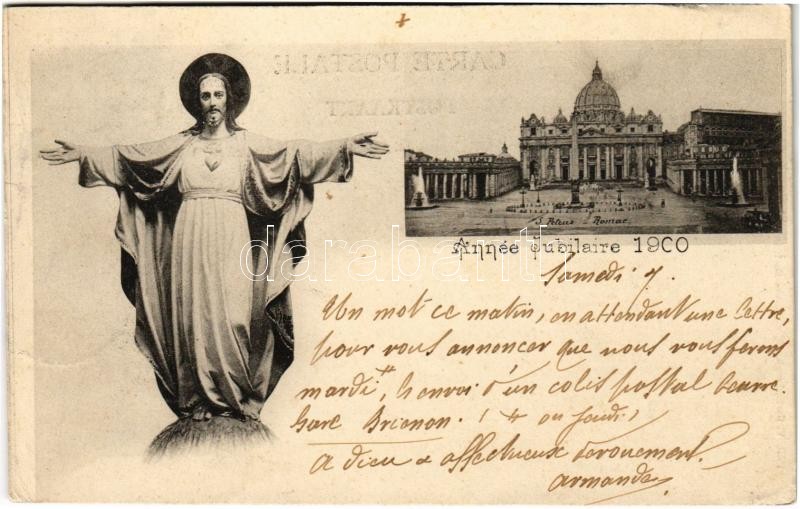 CARTE POSTALE
POSTKAART
S. Petrus - Romae
Année Jubilaire 1900
darabanth
Samedi 7.
Un mot ce matin, en attendant une lettre,
pour vous annoncer que nous vous ferons
mardi ++, l'envoi d'un colis postal beurre.
Gare Brienon. ( ++ ou jeudi)
A dieu & affectueux dévouement.
Armande